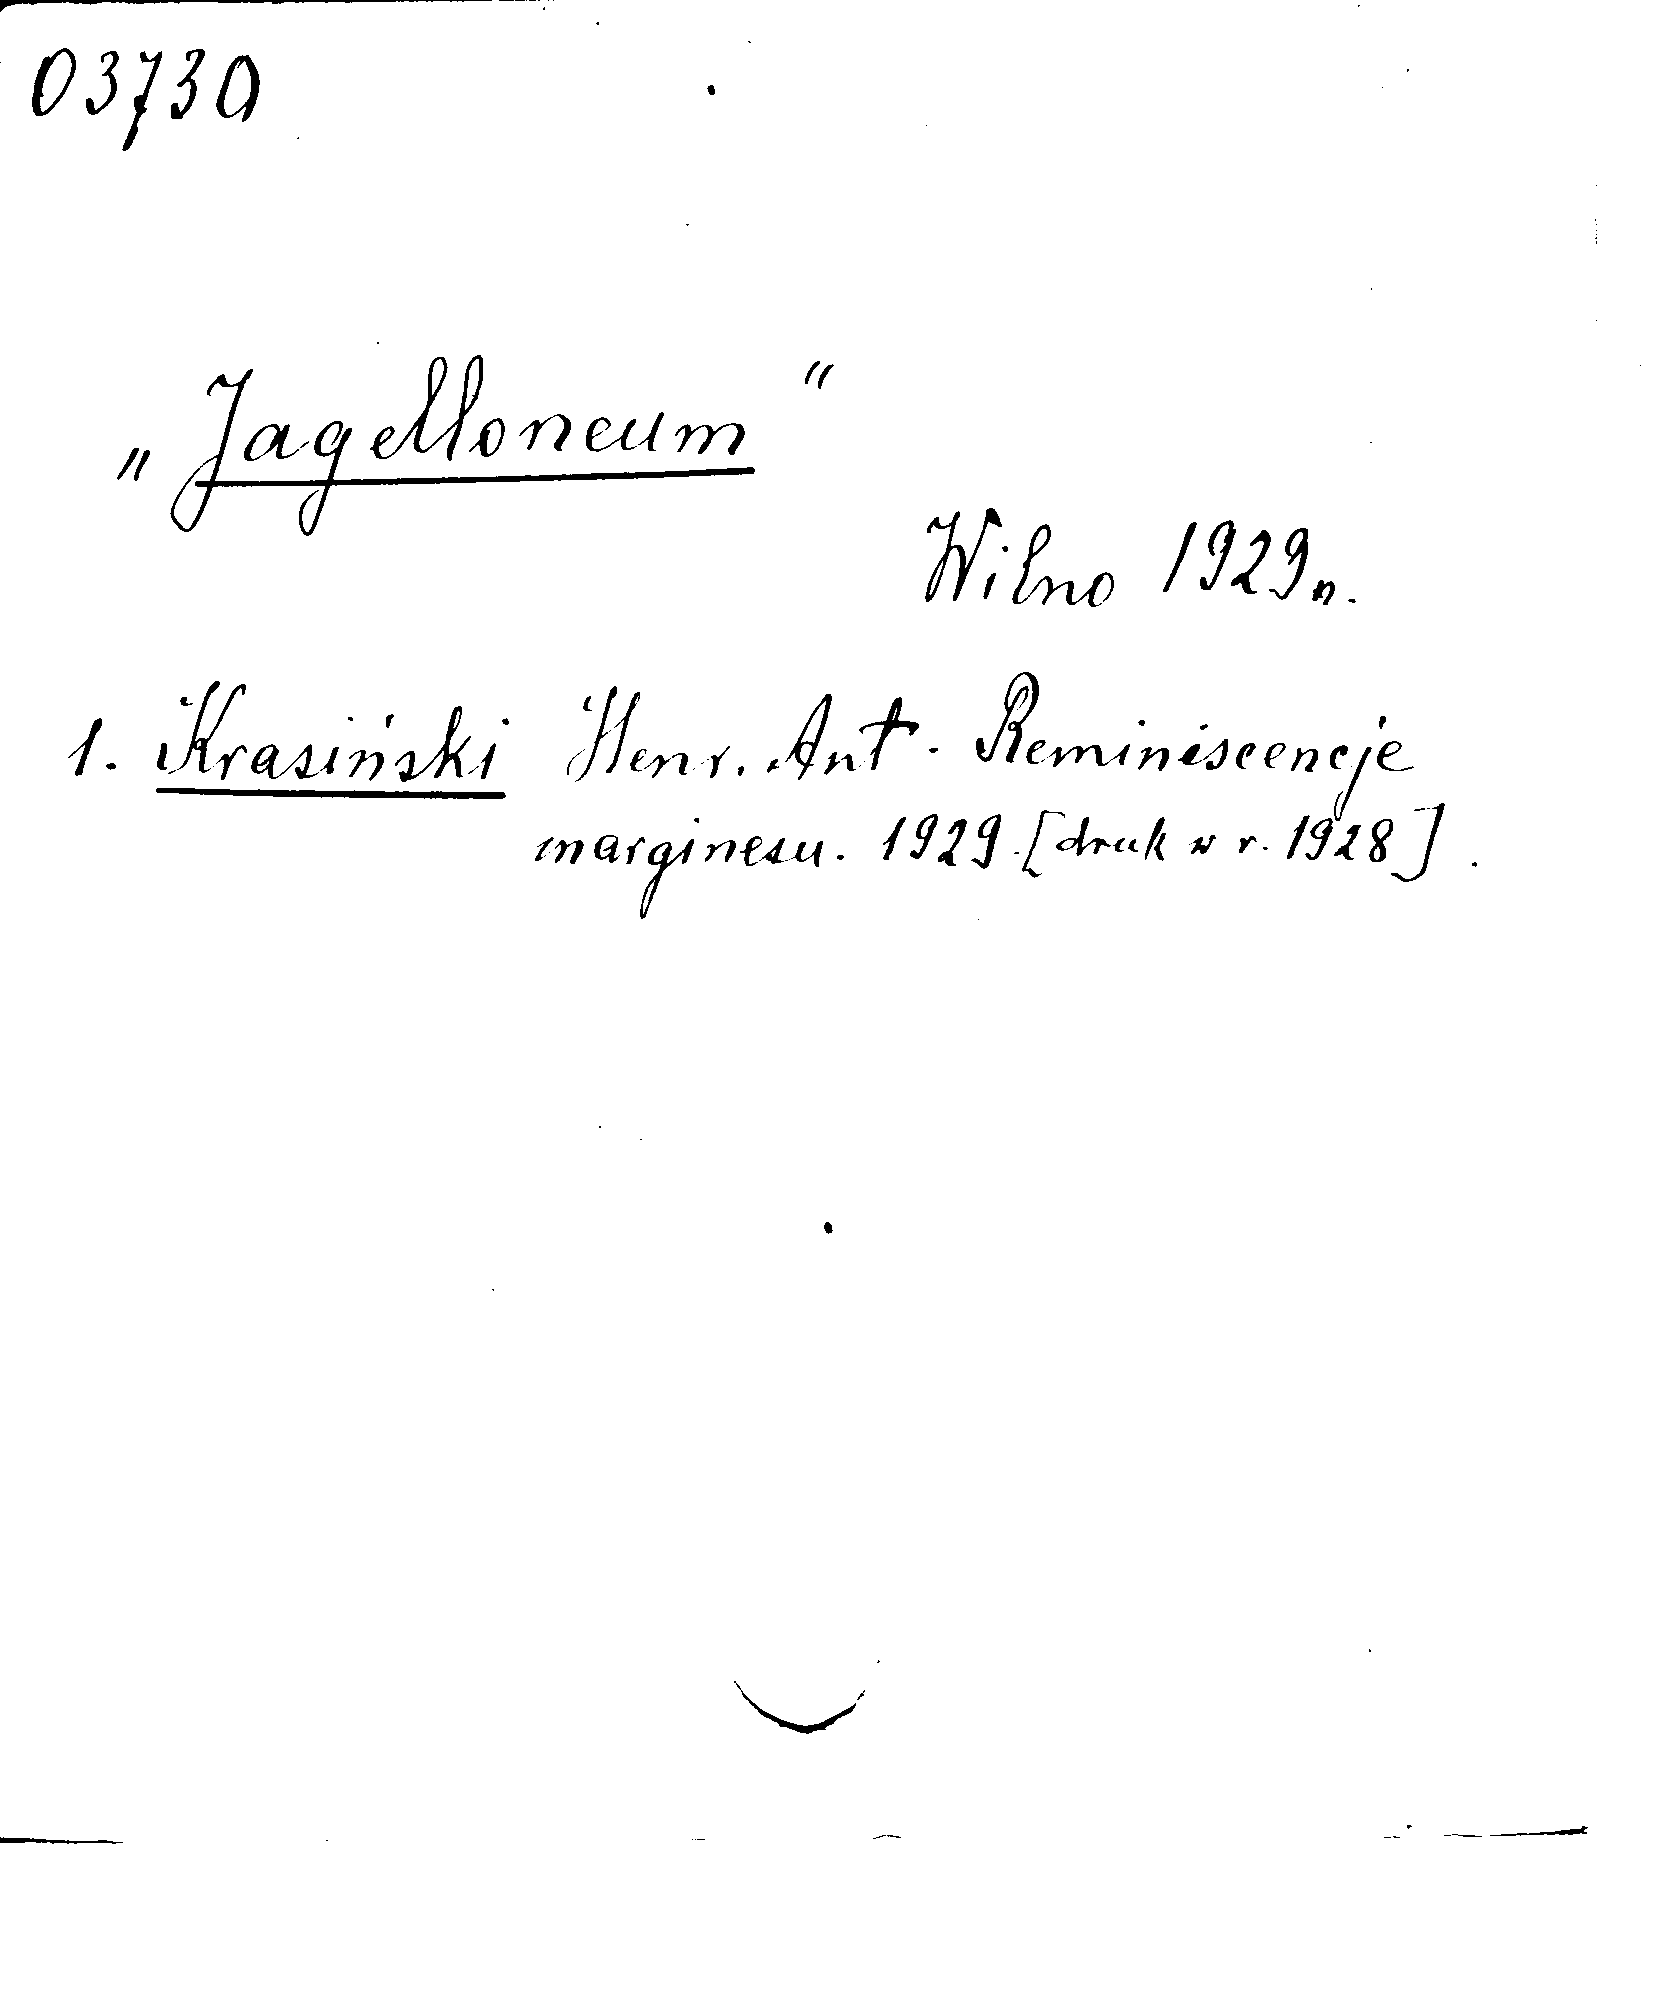 03730
„Jagelloneum“
Wilno 1929 r.
1. Krasiński Henr. Ant. Reminiscencje
marginesu. 1929. [druk w r. 1928].